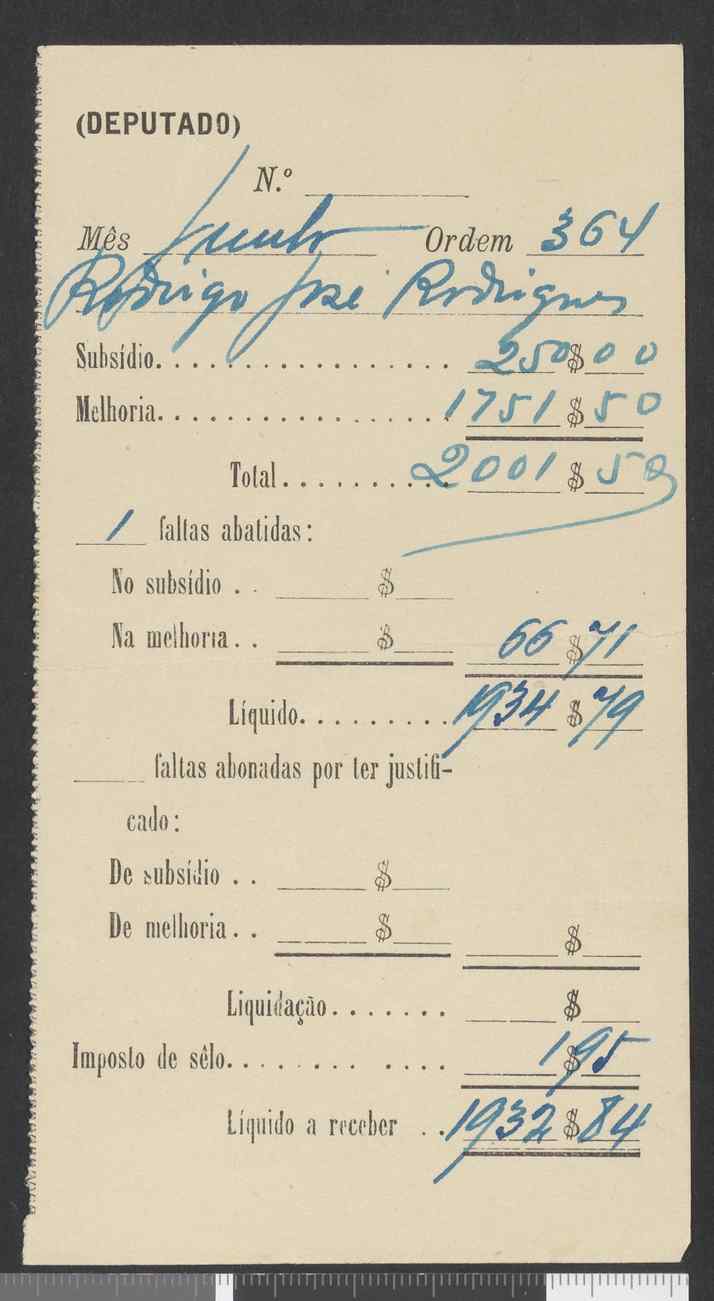 (DEPUTADO)
N.º
Mês Junho Ordem 364
Rodrigo José Rodrigues
Subsídio. . . . . . . . . . . . . . . . . 250$00
Melhoria. . . . . . . . . . . . . . . . . 1751$50
Total. . . . . . . . . . 2001$50
1 faltas abatidas:
No subsídio . . $
Na melhoria. . $ 66$71
Líquido. . . . . . . . . 1934$79
faltas abonadas por ter justifi-
cado:
De subsídio . . $
De melhoria. . $ $
Liquidação. . . . . . . $
Impôsto de sêlo. . . . . . . . . . . . 1$95
Líquido a receber . . 1932$84